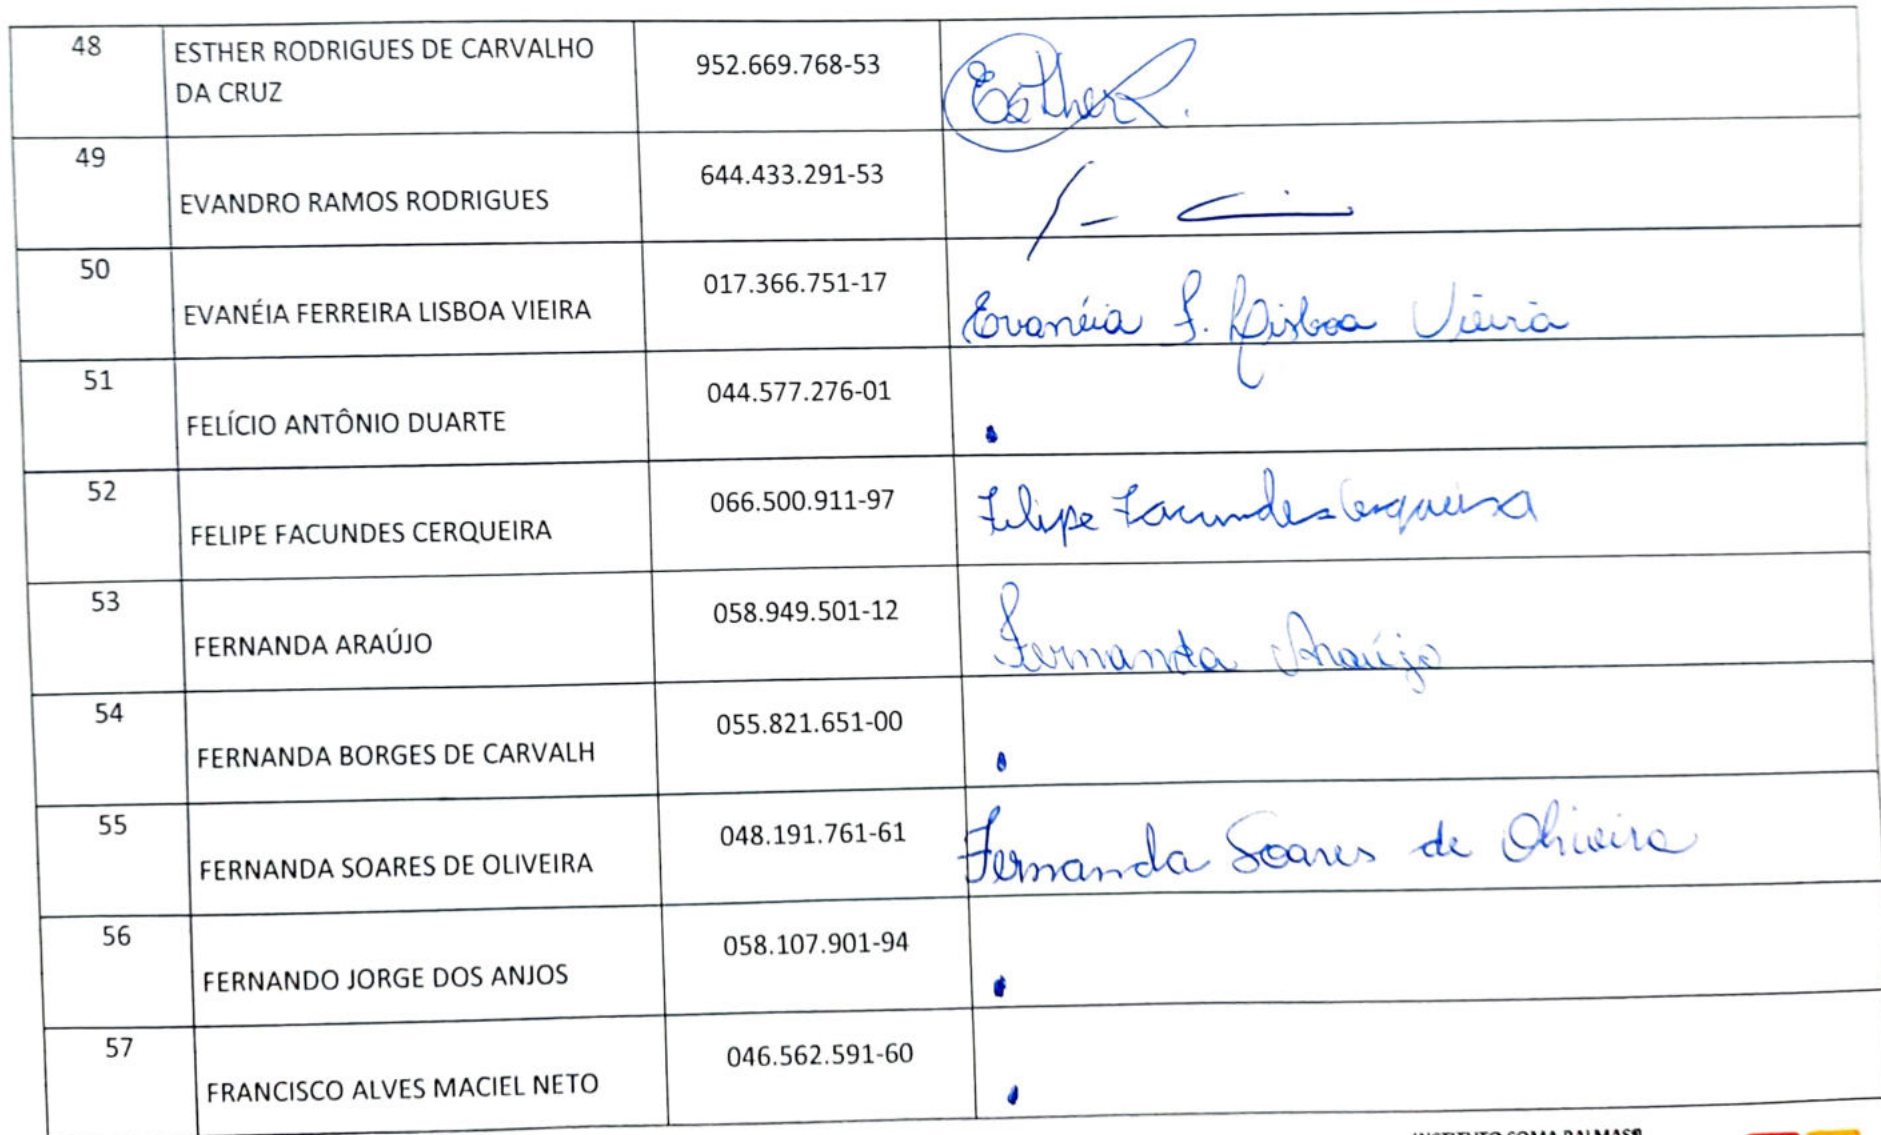 48 ESTHER RODRIGUES DE CARVALHO 952.669.768-53 Esther R.
DA CRUZ
49 EVANDRO RAMOS RODRIGUES 644.433.291-53
50 EVANÉIA FERREIRA LISBOA VIEIRA 017.366.751-17 Evanéia F. Lisboa Vieira
51 FELÍCIO ANTÔNIO DUARTE 044.577.276-01
52 FELIPE FACUNDES CERQUEIRA 066.500.911-97 Felipe Facundes Cerqueira
53 FERNANDA ARAÚJO 058.949.501-12 Fernanda Araújo
54 FERNANDA BORGES DE CARVALH 055.821.651-00
55 FERNANDA SOARES DE OLIVEIRA 048.191.761-61 Fernanda Soares de Oliveira
56 FERNANDO JORGE DOS ANJOS 058.107.901-94
57 FRANCISCO ALVES MACIEL NETO 046.562.591-60
INSTITUTO SOMA PALMAS